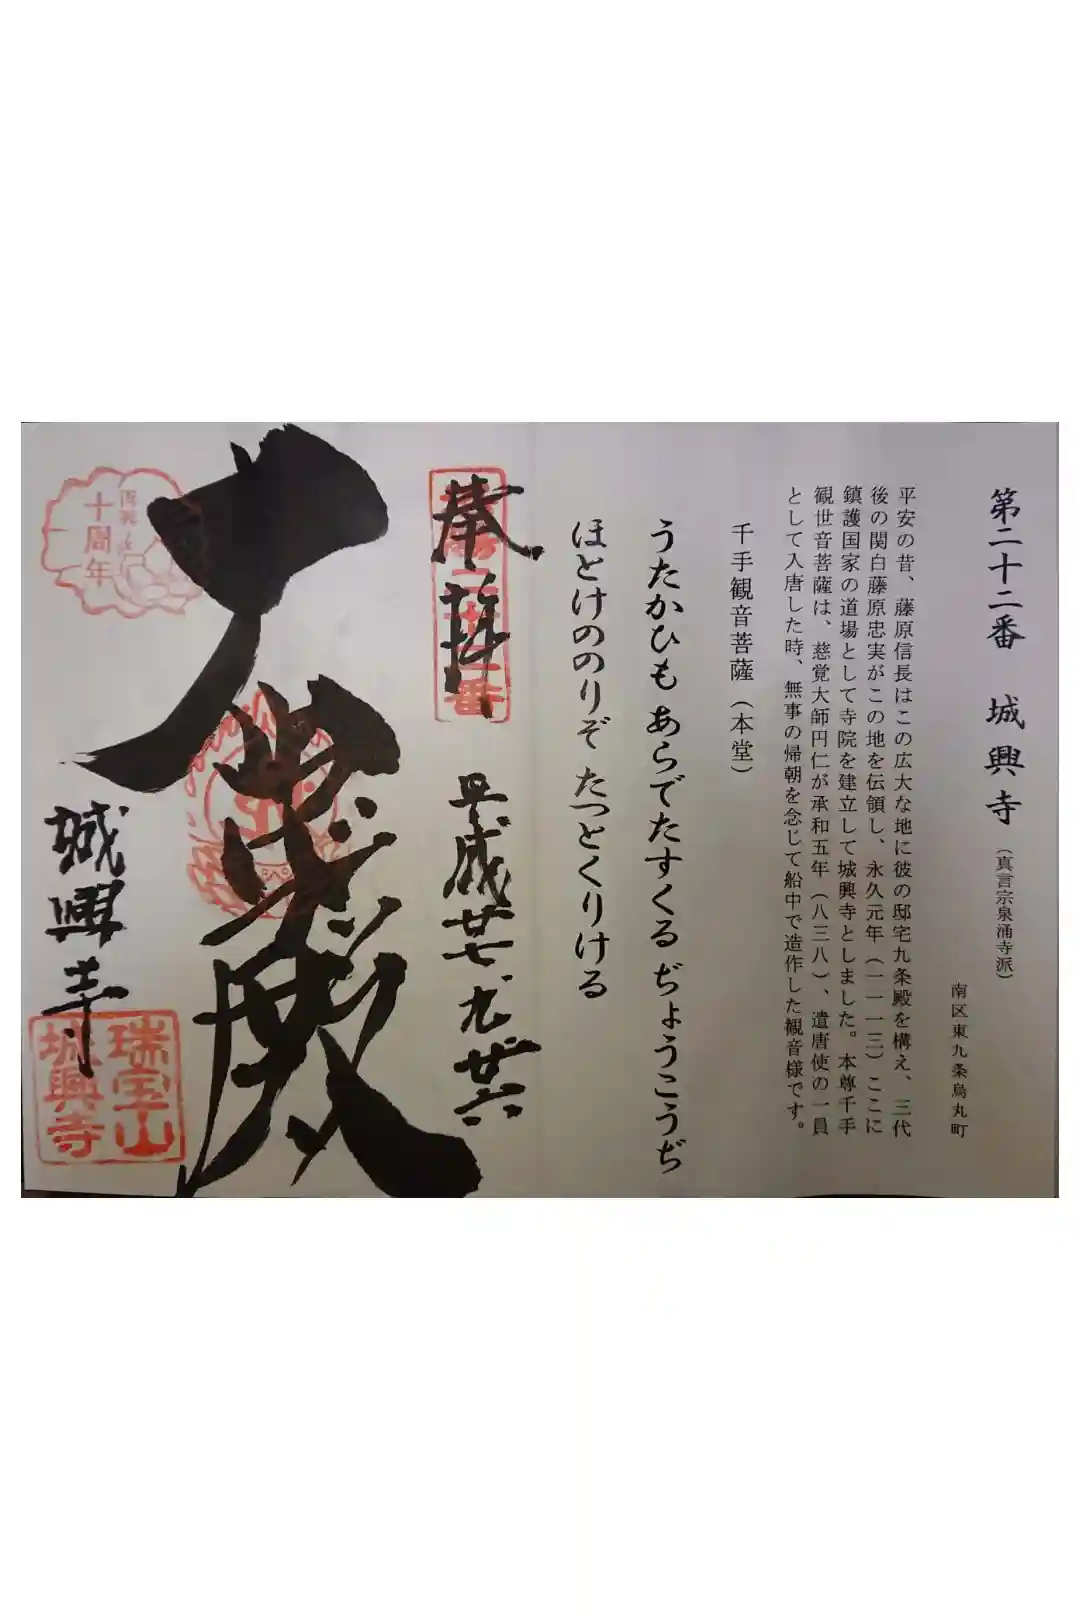 第二十二番 城興寺(真言宗泉涌寺派)
南区東九条烏丸町
平安の昔、藤原信長はこの広大な地に彼の邸宅九条殿を構え、三代
後の関白藤原忠実がこの地を伝領し、永久元年(一一一三)ここに
鎮護国家の道場として寺院を建立して城興寺としました。本尊千手
観世音菩薩は、慈覚大師円仁が承和五年(八三八)、遣唐使の一員
として入唐した時、無事の帰朝を念じて船中で造作した観音様です。
千手観音菩薩(本堂)
うたかひも あらでたすくる ぢょうこうぢ
ほとけののりぞ たつとくりける
奉拝
平成廿七 九 廿六
大悲殿
城興寺
十周年
瑞宝山
城興寺